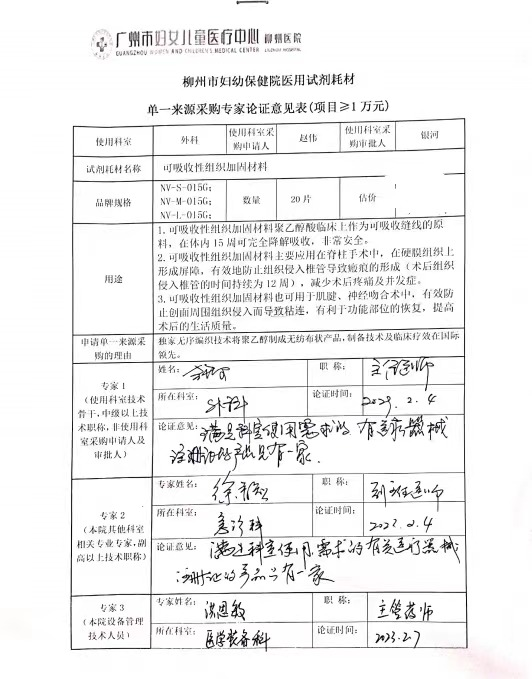 广州市妇女儿童医疗中心 柳州医院
GUANGZHOU WOMEN AND CHILDREN'S MEDICAL CENTER LIUZHOU HOSPITAL
柳州市妇幼保健院医用试剂耗材
单一来源采购专家论证意见表(项目≥1万元)
使用科室 外科 使用科室采购申请人 赵伟 使用科室采购审批人 银河
试剂耗材名称 可吸收性组织加固材料
品牌规格 NV-S-015G; NV-M-015G; NV-L-015G; 数量 20片 估价
用途
1.可吸收性组织加固材料聚乙醇酸临床上作为可吸收缝线的原
料,在体内15周可完全降解吸收,非常安全。
2.可吸收性组织加固材料主要应用在脊柱手术中,在硬膜组织上
形成屏障,有效地防止组织侵入椎管导致瘢痕的形成(术后组织
侵入椎管的时间持续为12周),减少术后疼痛及并发症。
3.可吸收性组织加固材料也可用于肌腱、神经吻合术中,有效防
止创面周围组织侵入而导致粘连,有利于功能部位的恢复,提高
术后的生活质量。
申请单一来源采购的理由
独家无序编织技术将聚乙醇制成无纺布状产品,制备技术及临床疗效在国际
领先。
专家1
(使用科室技术骨干,中级以上技术职称,非使用科室采购申请人及审批人)
姓名: 职称: 主任医师
所在科室: 外科 论证时间: 2023.2.4
论证意见: 满足科室使用需求的有关医疗器械
注册证的产品只有一家.
专家2
(本院其他科室相关专业专家,副高以上技术职称)
专家姓名: 职称: 副主任医师
所在科室: 急诊科 论证时间: 2023.2.4
论证意见: 满足科室使用需求的有关医疗器械
注册证的产品只有一家
专家3
(本院设备管理技术人员)
专家姓名: 洪恩敏 职称: 主管药师
所在科室: 医学装备科 论证时间: 2023.2.7